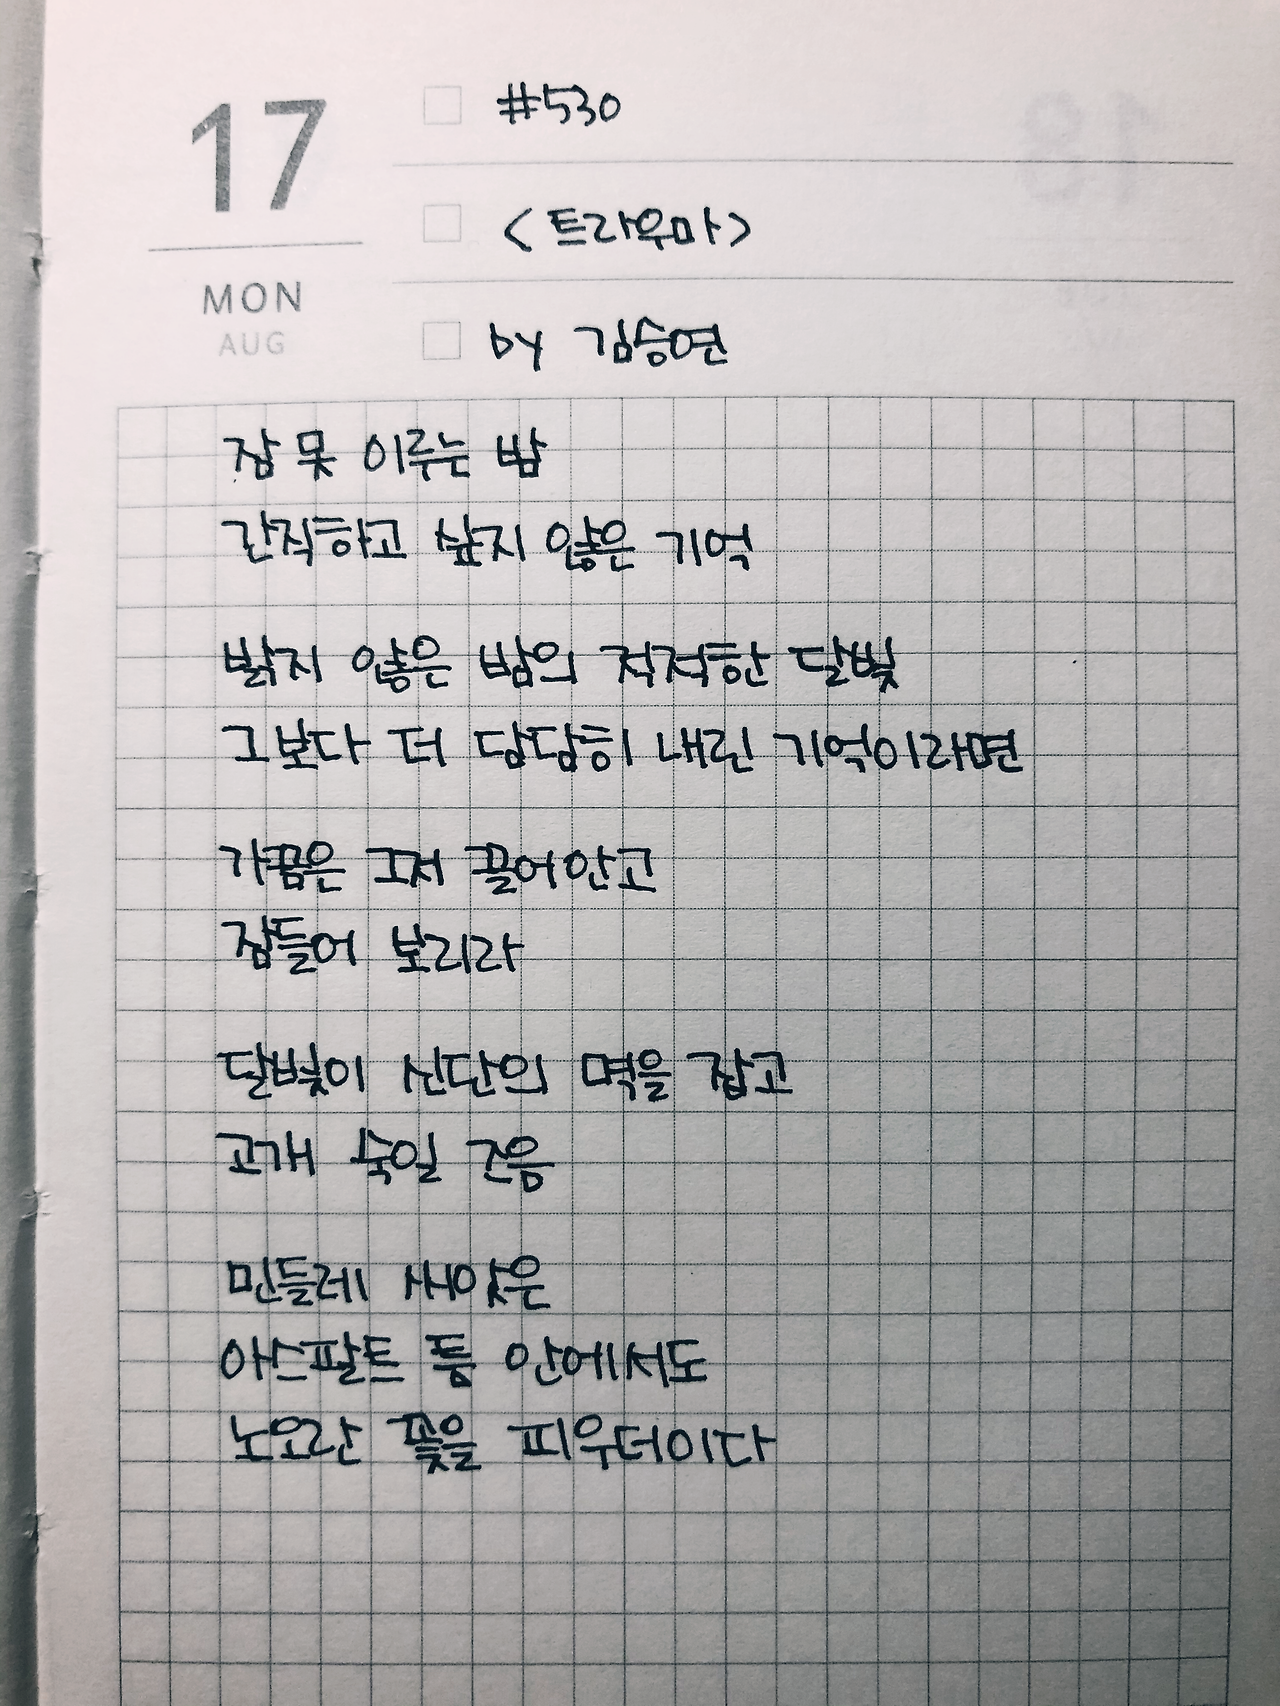 17
MON
AUG
#530
<트라우마>
by 김승연
잠 못 이루는 밤
간직하고 싶지 않은 기억
밝지 않은 밤의 적적한 달빛
그보다 더 담담히 내린 기억이라면
가끔은 그저 끌어안고
잠들어 보리라
달빛이 신단의 멱을 잡고
고개 숙일 즈음
민들레 씨앗은
아스팔트 틈 안에서도
노오란 꽃을 피우더이다